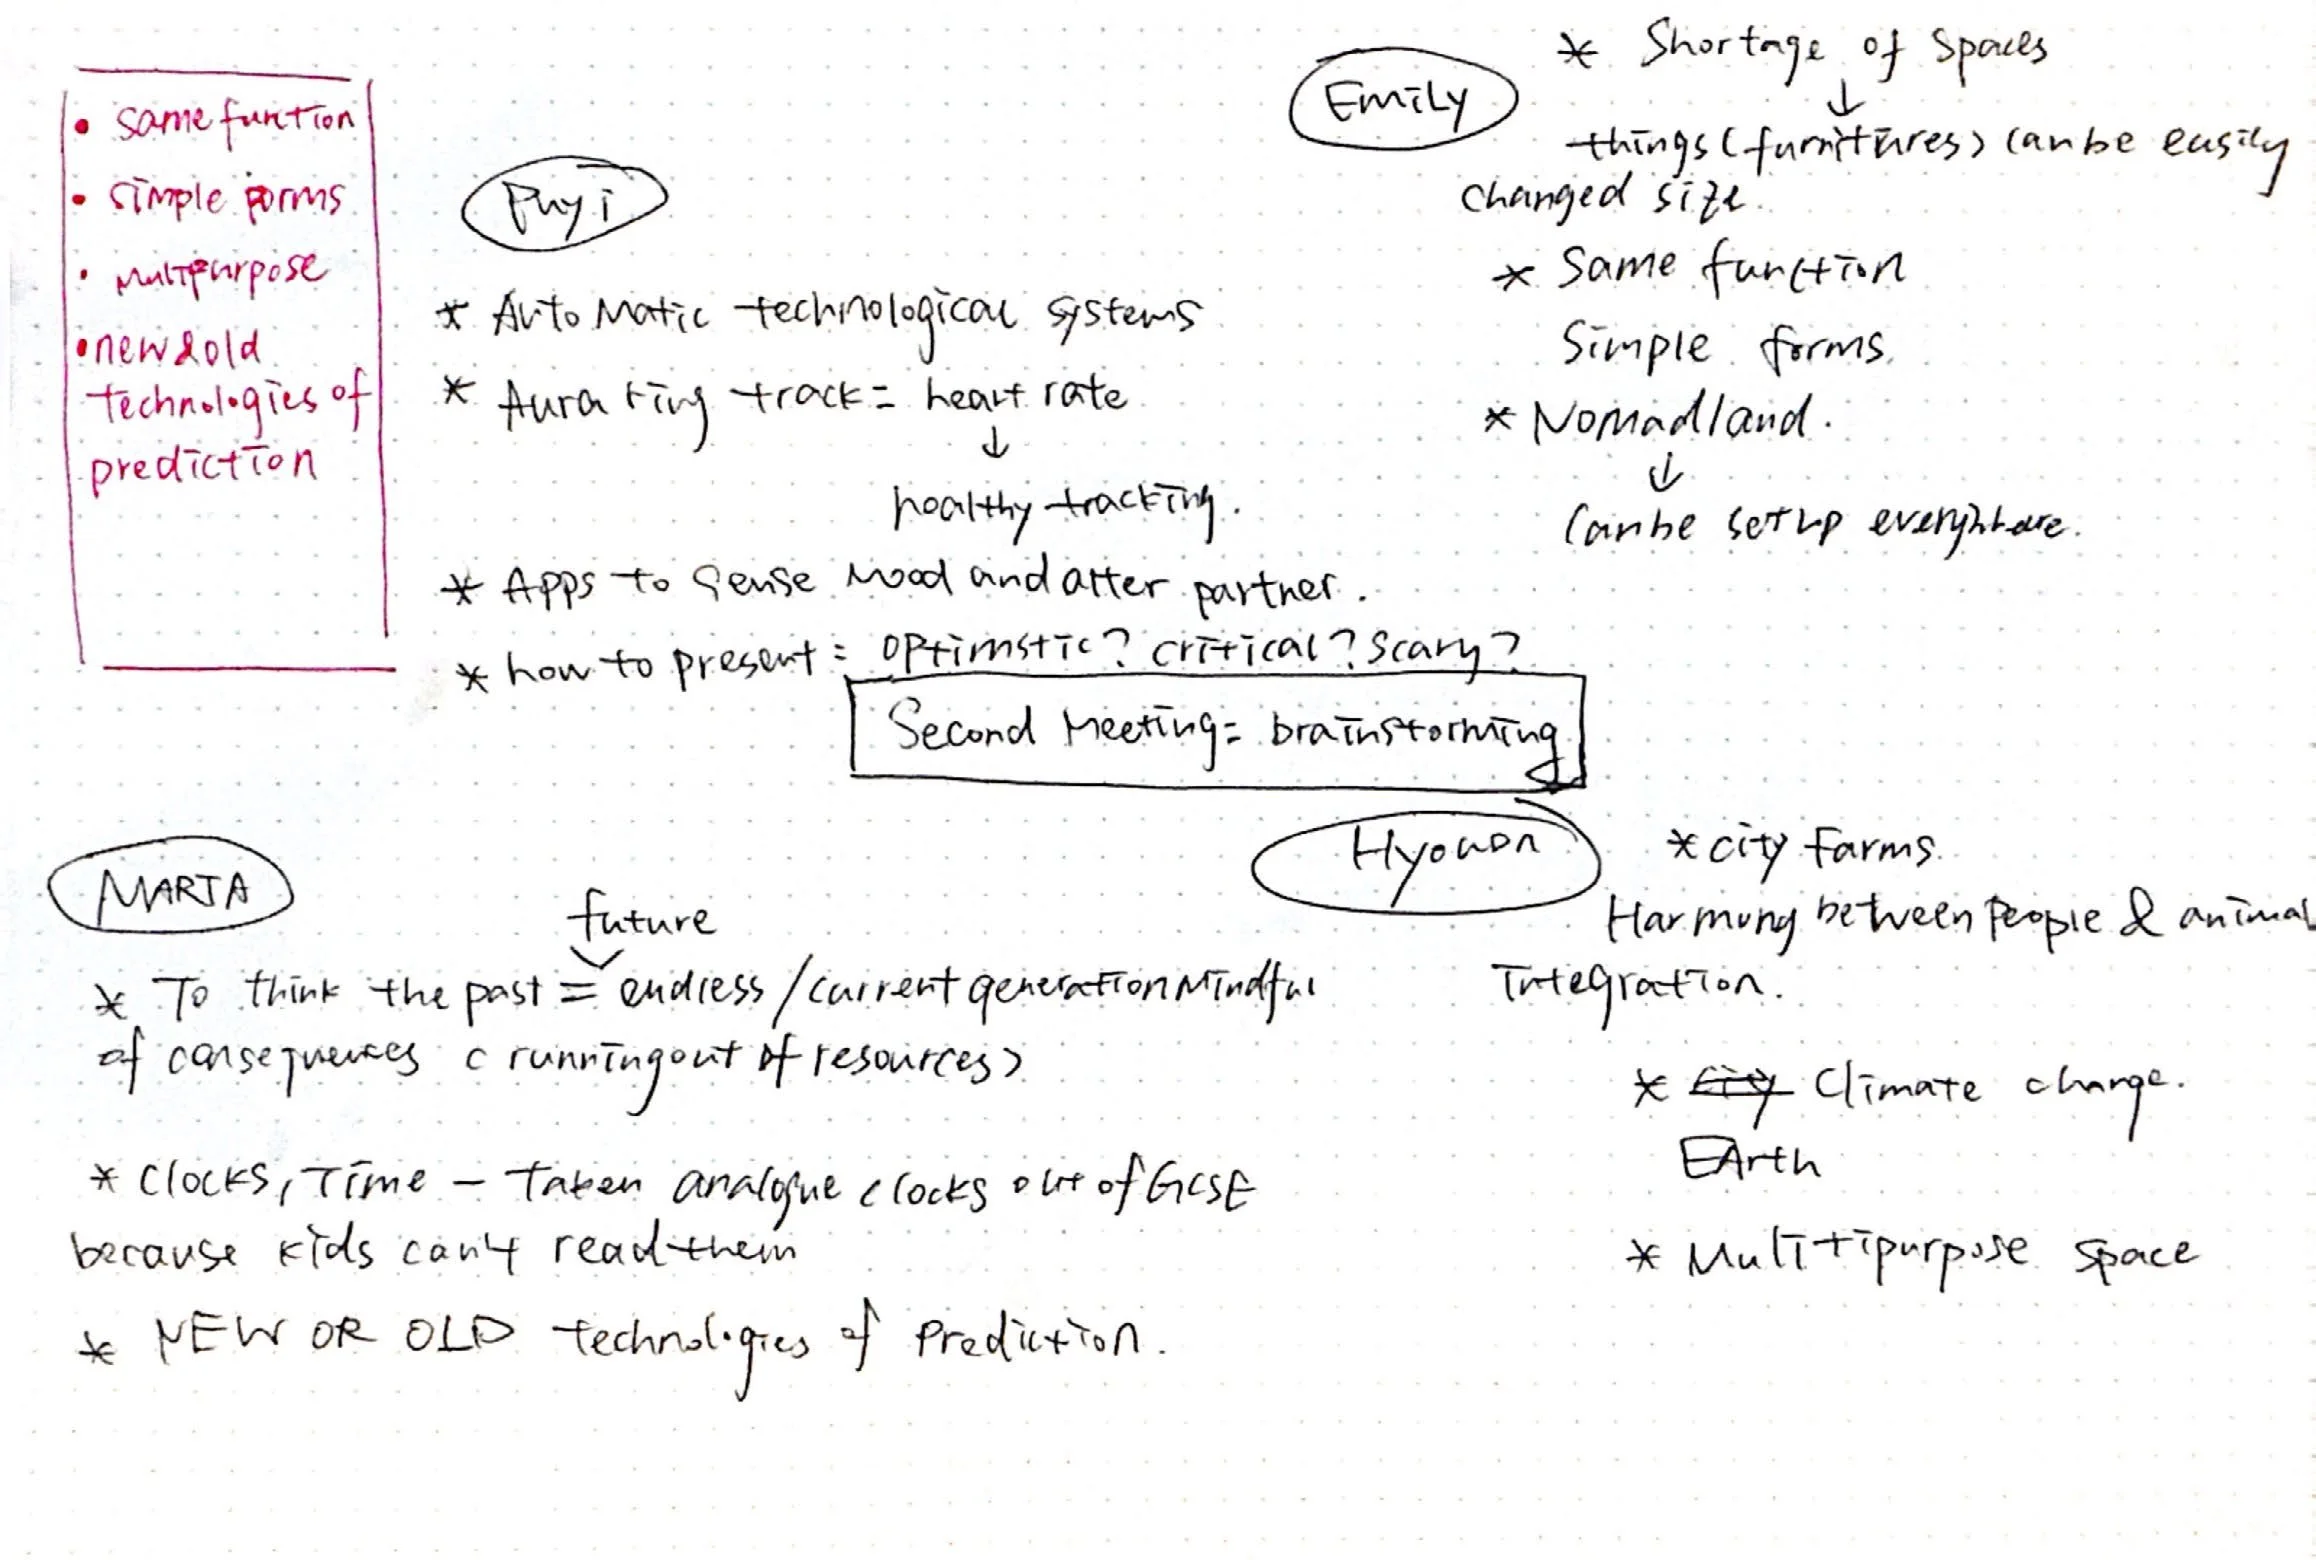 • same function
• simple forms
• Multipurpose
• new & old
technologies of
prediction
Puyi
* AutoMatic technological systems
* Aura ring track = heart rate
↓
healthy tracking.
* Apps to sense Mood and atter partner.
* how to present = optimstic? critical? scary?
Emily
* Shortage of spaces
↓
things (furnitures) can be easily
changed size.
* Same function
Simple forms.
* Nomadland.
↓
Can be set up everywhere.
Second Meeting = brainstorming
MARTA
future
* To think the past = endless / current generation Mindful
of consequences (running out of resources)
* Clocks, Time – Taken analogue clocks out of GCSE
because kids can't read them
* NEW OR OLD technologies of Prediction.
Hyowon
* city farms.
Harmony between People & animal
Integration.
* city Climate change.
EArth
* Multipurpose space